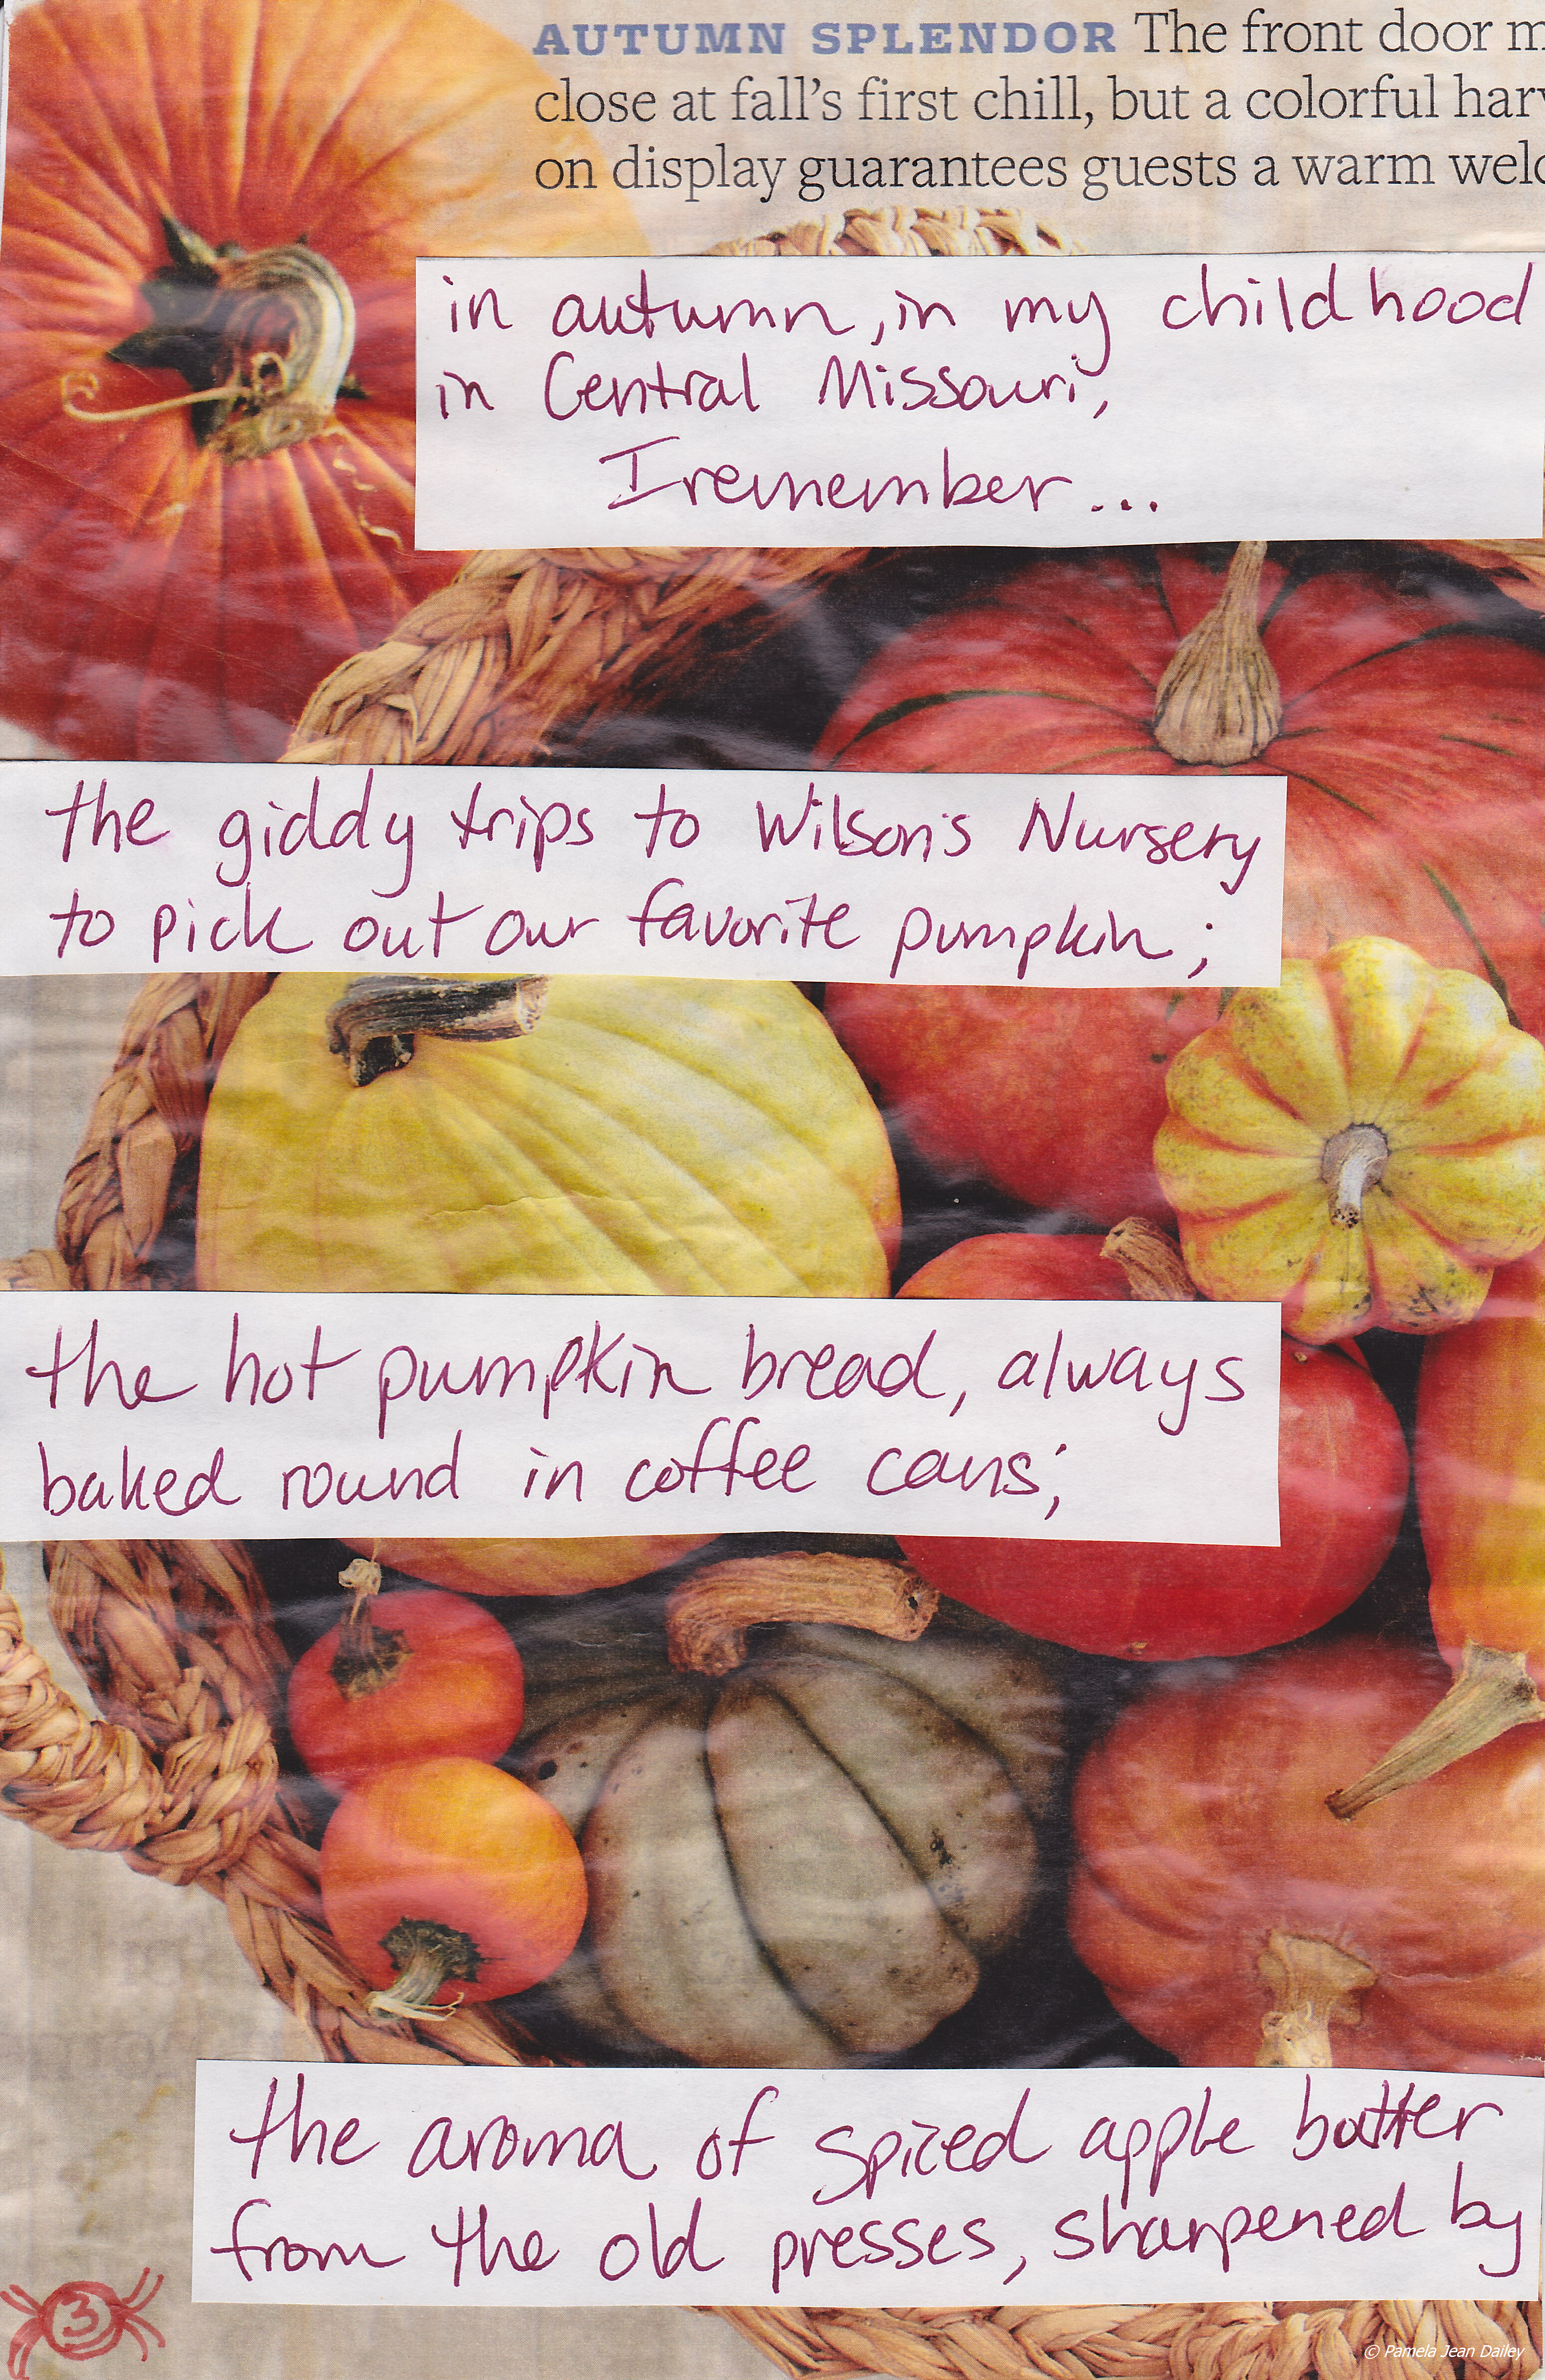 AUTUMN SPLENDOR The front door m
close at fall's first chill, but a colorful harv
on display guarantees guests a warm welc
in autumn, in my childhood
in Central Missouri,
I remember...
the giddy trips to Wilson's Nursery
to pick out our favorite pumpkin;
the hot pumpkin bread, always
baked round in coffee cans;
the aroma of spiced apple butter
from the old presses, sharpened by
3
© Pamela Jean Dailey